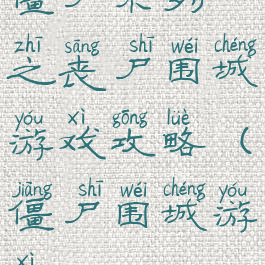 zhī sāng shī wéi chéng
之丧尸围城
yóu xì gōng lüè
游戏攻略（
jiāng shī wéi chéng yóu
僵尸围城游
xì